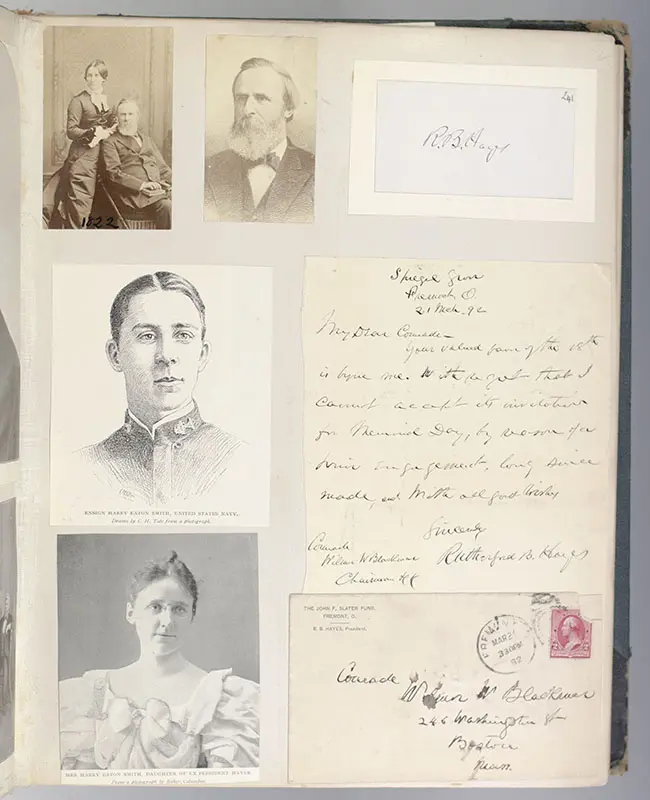 1822
241
R. B. Hayes
ENSIGN HARRY EATON SMITH, UNITED STATES NAVY.
Drawn by C. H. Tate from a photograph.
MRS HARRY EATON SMITH, DAUGHTER OF EX-PRESIDENT HAYES.
From a photograph by Baker, Columbus.
Spiegel Grove
Fremont, O.
21 Mch. 92
My Dear Comrade—
Your valued favor of the 18th
is before me. With regret that I
cannot accept its invitation
for Memorial Day, by reason of a
prior engagement, long since
made, and with all good wishes
Sincerely
Rutherford B. Hayes
Comrade
Wilmon W Blackmar
Chairman
THE JOHN F. SLATER FUND.
FREMONT, O.
R. B. HAYES, President.
FREMONT
MAR 21
330PM
92
Comrade
Wilmon W Blackmar
246 Washington St
Boston
Mass.